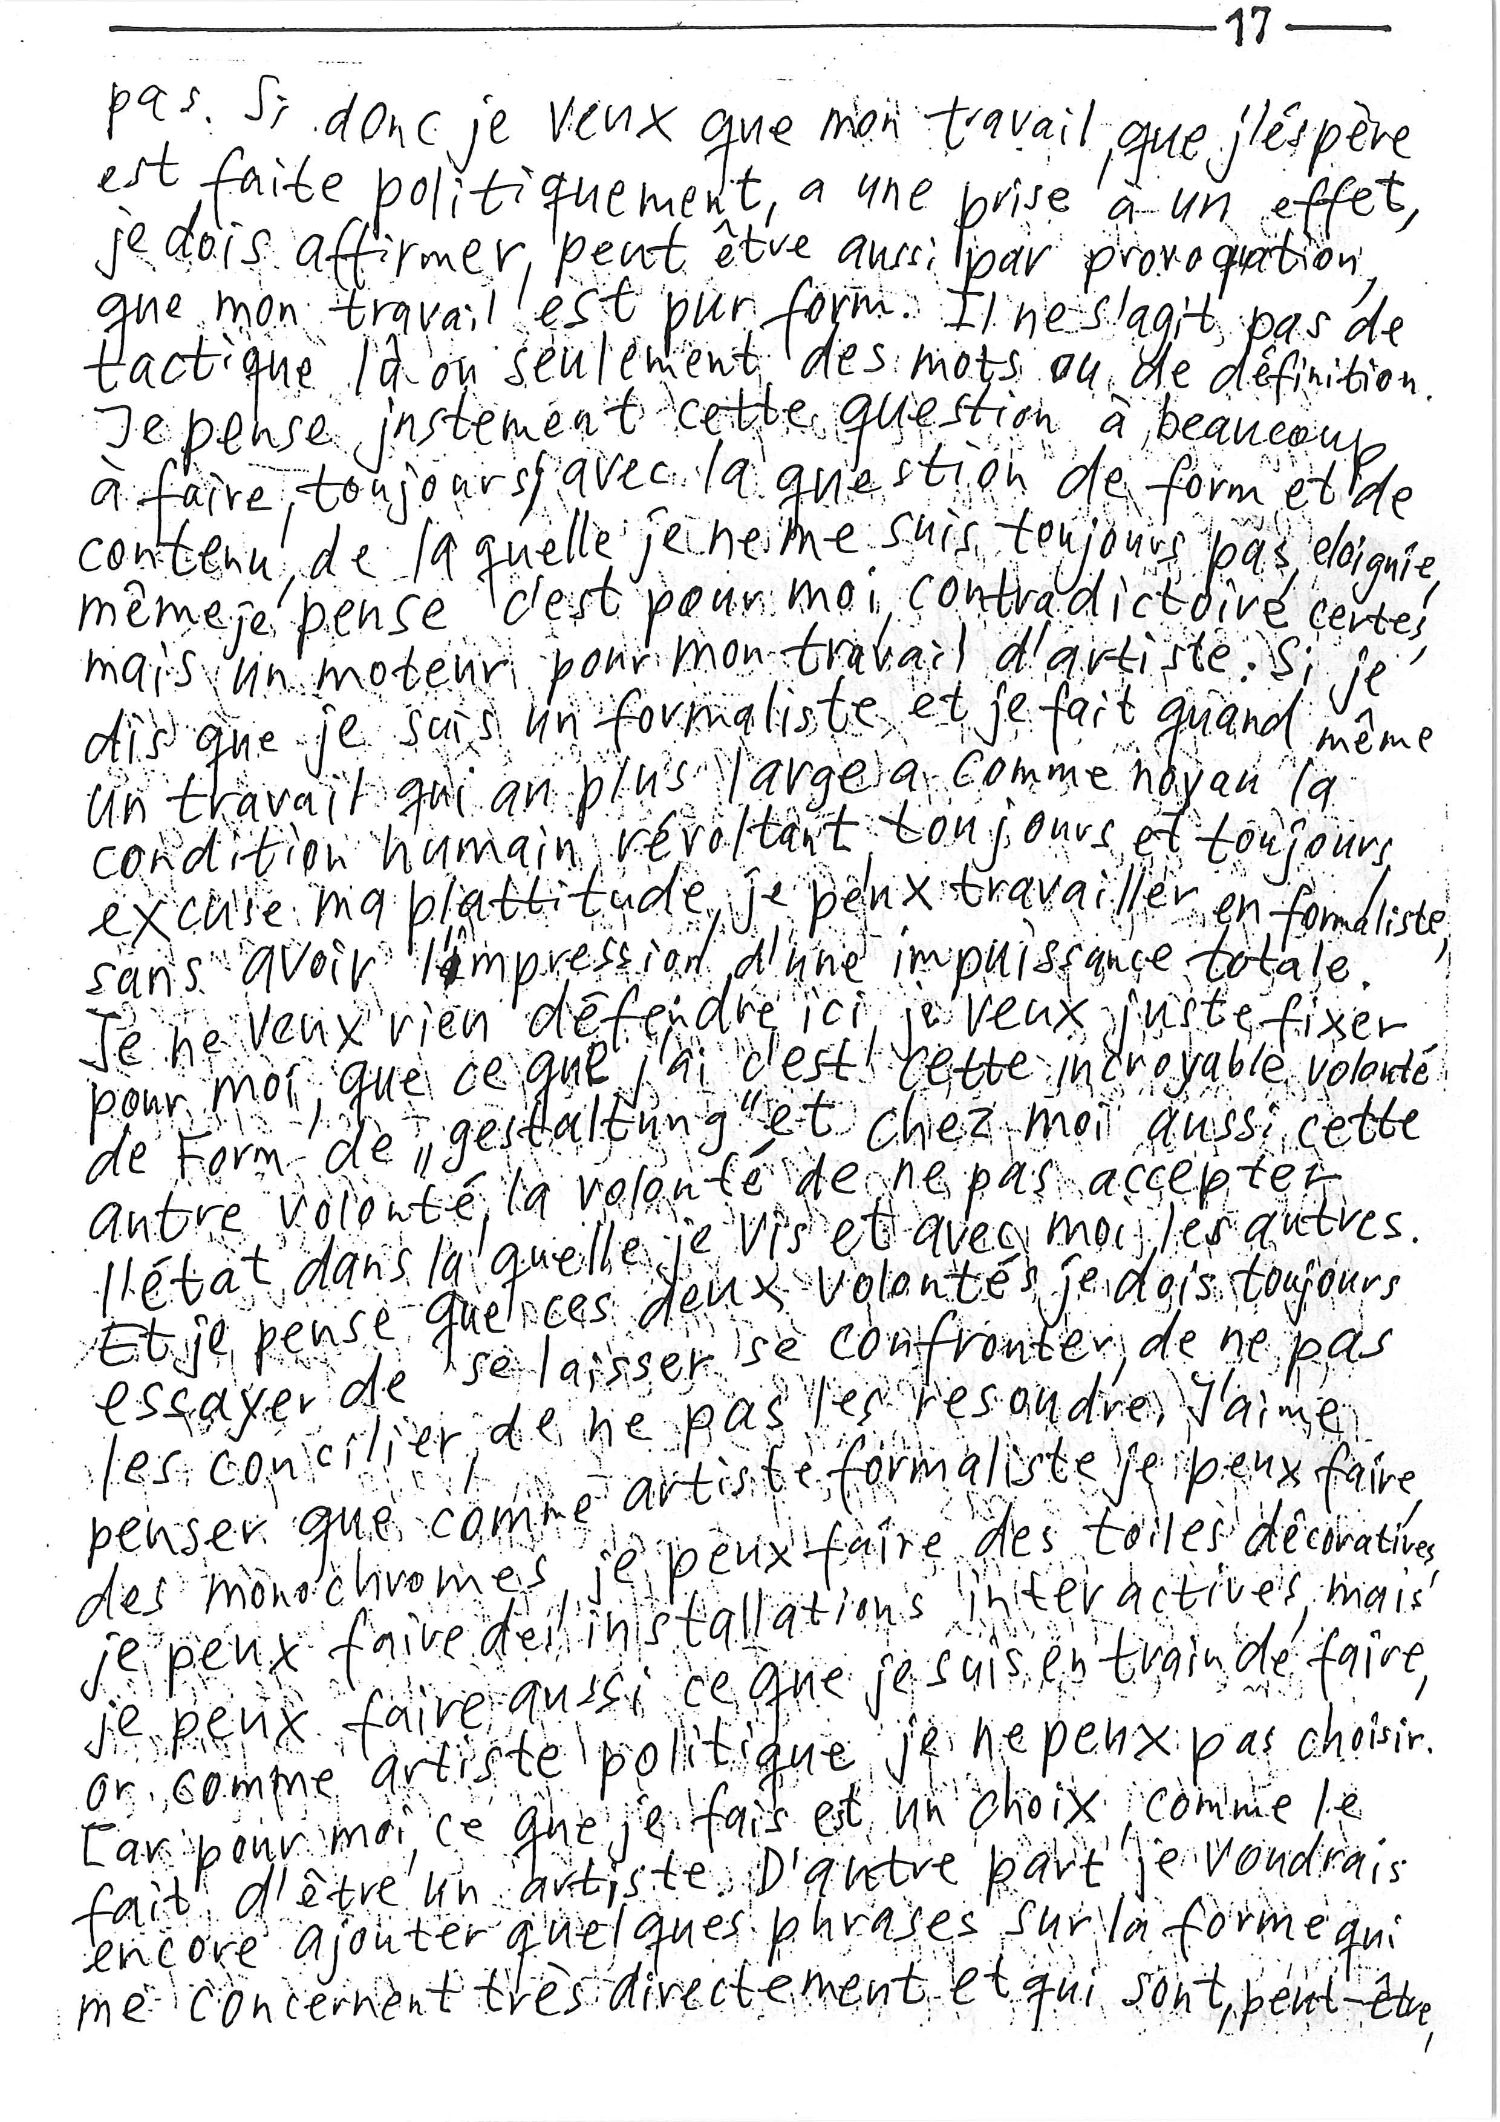 17
pas. Si donc je veux que mon travail, que j'éspère
est faite politiquement, a une prise à un effet,
je dois affirmer, peut être aussi par provoquation,
que mon travail est pur form. Il ne s'agit pas de
tactique là ou seulement des mots ou de définition.
Je pense justement cette question à beaucoup
à faire, toujours, avec la question de form et de
contenu, de la quelle je ne me suis toujours pas eloignie,
même je pense c'est pour moi, contradictoire certes,
mais un moteur pour mon travail d'artiste. Si je
dis que je suis un formaliste et je fait quand même
un travail qui au plus large a comme noyau la
condition humain révoltant toujours et toujours,
excuse ma plattitude, je peux travailler en formaliste,
sans avoir l'impression d'une impuissance totale.
Je ne veux rien défendre ici, je veux juste fixer
pour moi, que ce que j'ai c'est cette incroyable volonté
de Form de „gestaltung" et chez moi aussi cette
autre volonté, la volonté de ne pas accepter
l'état dans la quelle je vis et avec moi les autres.
Et je pense que ces deux volontés je dois toujours
essayer de se laisser se confronter, de ne pas
les concilier, de ne pas les resoudre. J'aime
penser que comme artiste formaliste je peux faire
des monochromes, je peux faire des toiles décoratives,
je peux faire des installations interactives, mais
je peux faire aussi ce que je suis en train de faire,
or comme artiste politique je ne peux pas choisir.
Car pour moi, ce que je fais est un choix, comme le
fait d'être un artiste. D'autre part je voudrais
encore ajouter quelques phrases sur la forme qui
me concernent très directement et qui sont, peut-être,